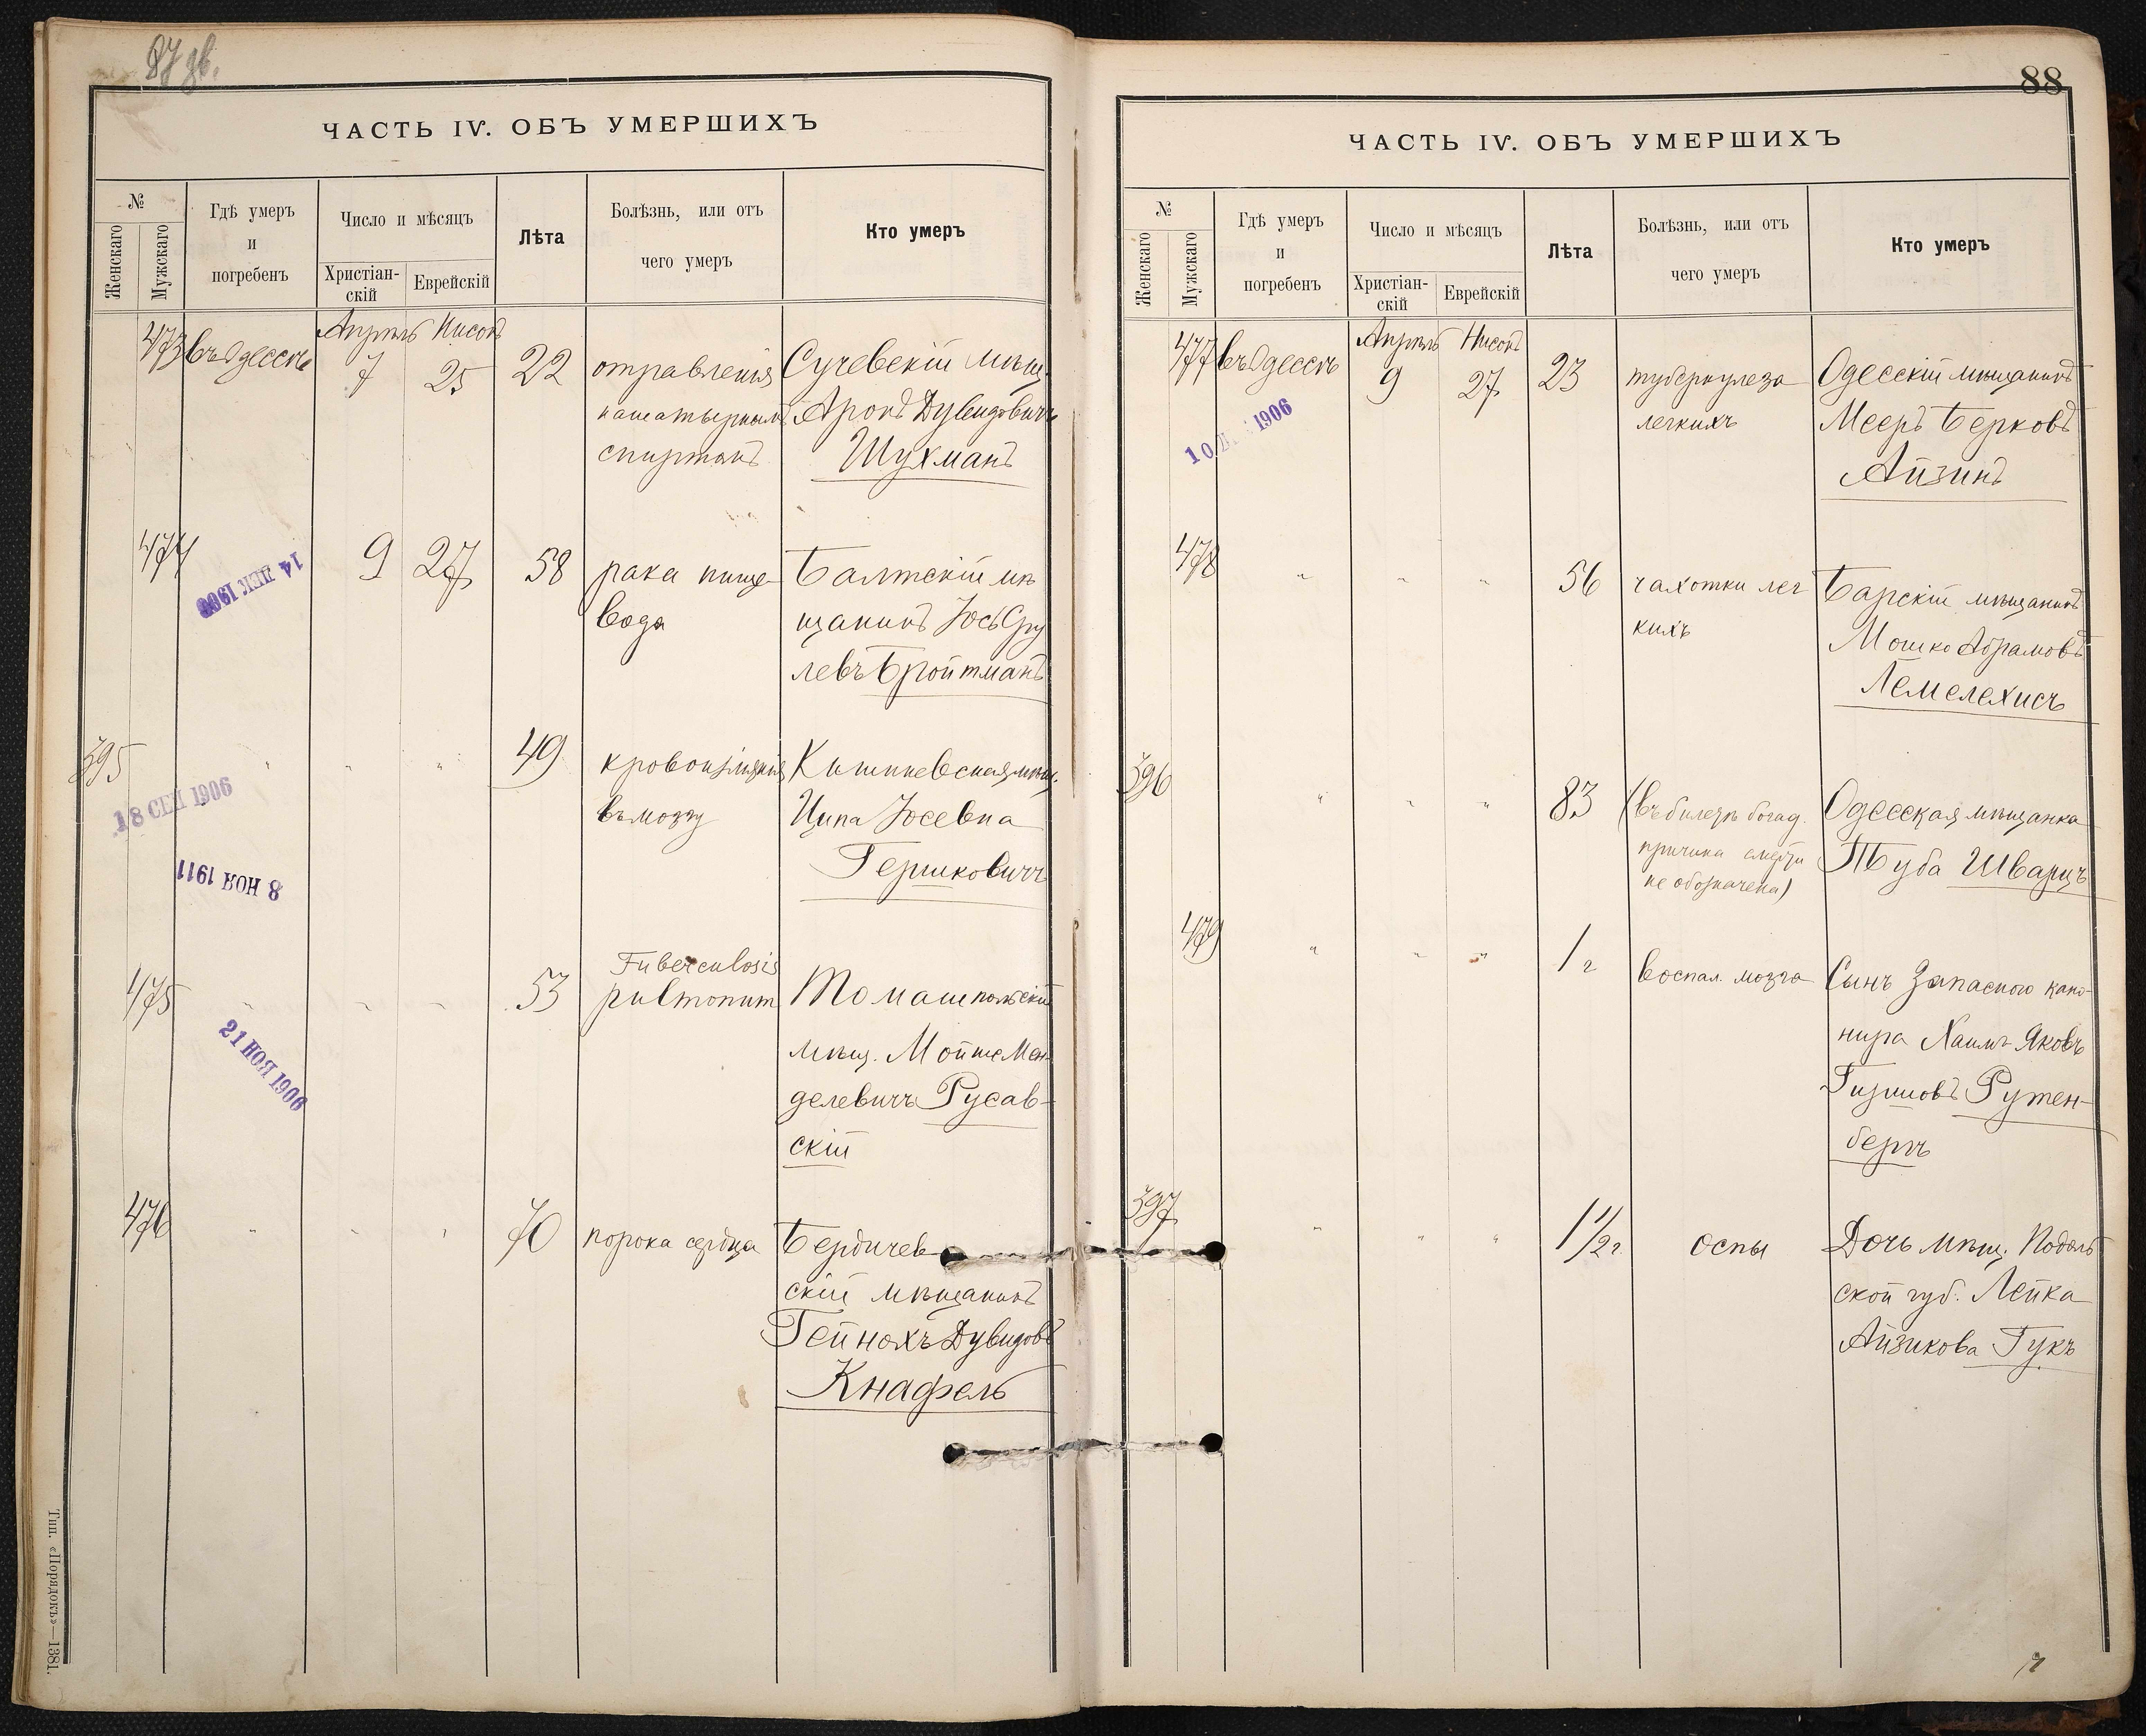 87 об.
ЧАСТЬ IV. ОБЪ УМЕРШИХЪ
№
Женскаго
Мужскаго
Гдѣ умеръ
и
погребенъ
Число и мѣсяцъ
Христіан-
скій
Еврейскій
Лѣта
Болѣзнь, или отъ
чего умеръ
Кто умеръ
Апрѣль Нисонъ
473 въ Одессѣ 7 25 22 отравленія Сучевскій мѣщ.
нашатырнымъ Аронъ Дувидовичъ
спиртомъ Шухманъ
474 9 27 58 рака пище- Балтскій мѣ
вода щанинъ Іось Сру
левъ Бройтманъ
14 ДЕК 1906
395 " " " 49 кровоизліянія Кишиневская мѣщ.
въ мозгу Ципа Іосевна
Гершковичъ
18 СЕН 1906
8 НОЯ 1911
475 " " " 53 Tuberculosis
pulmonum Томашпольскій
мѣщ. Мойше Мен-
делевичъ Русав-
скій
21 НОЯ 1906
476 " " " 70 порока сердца Бердичев-
скій мѣщанинъ
Гейнохъ Дувидовъ
Кнафель
Тип. «Порядокъ»—1381.
88
ЧАСТЬ IV. ОБЪ УМЕРШИХЪ
№
Женскаго
Мужскаго
Гдѣ умеръ
и
погребенъ
Число и мѣсяцъ
Христіан-
скій
Еврейскій
Лѣта
Болѣзнь, или отъ
чего умеръ
Кто умеръ
Апрѣль Нисонъ
477 въ Одессѣ 9 27 23 туберкулеза Одесскій мѣщанинъ
легкихъ Мееръ Берковъ
Айзинъ
10 1906
478 " " " 56 чахотки лег Барскій мѣщанинъ
кихъ Мошко Абрамовъ
Лемелехисъ
396 " " " 83 (въ билетѣ богад. Одесская мѣщанка
причина смерти Туба Шварцъ
не обозначена)
479 " " " 1 г воспал. мозга Сынъ Запасного кано-
нира Хаимъ-Яковъ
Гиршовъ Рутен-
бергъ
397 " " " 1 1/2 г. оспы Дочь мѣщ. Подоль
ской губ. Лейка
Айзикова Гукъ